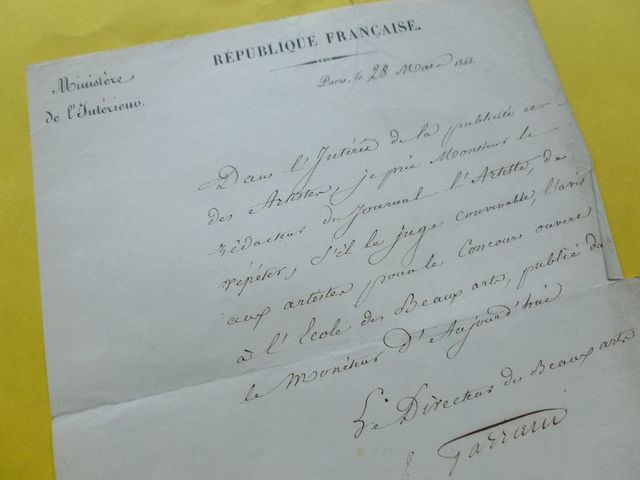 RÉPUBLIQUE FRANÇAISE.
Ministère
de l'Intérieur.
Paris, le 28 Mars 1848.
Dans l'Intérêt de la publicité et
des Artistes, je prie Monsieur le
rédacteur du Journal l'Artiste, de
répéter, s'il le juge convenable, l'avis
aux artistes pour le Concours ouvert
à l'École des Beaux arts, publié dans
le Moniteur d'Aujourd'hui
Le Directeur des Beaux arts